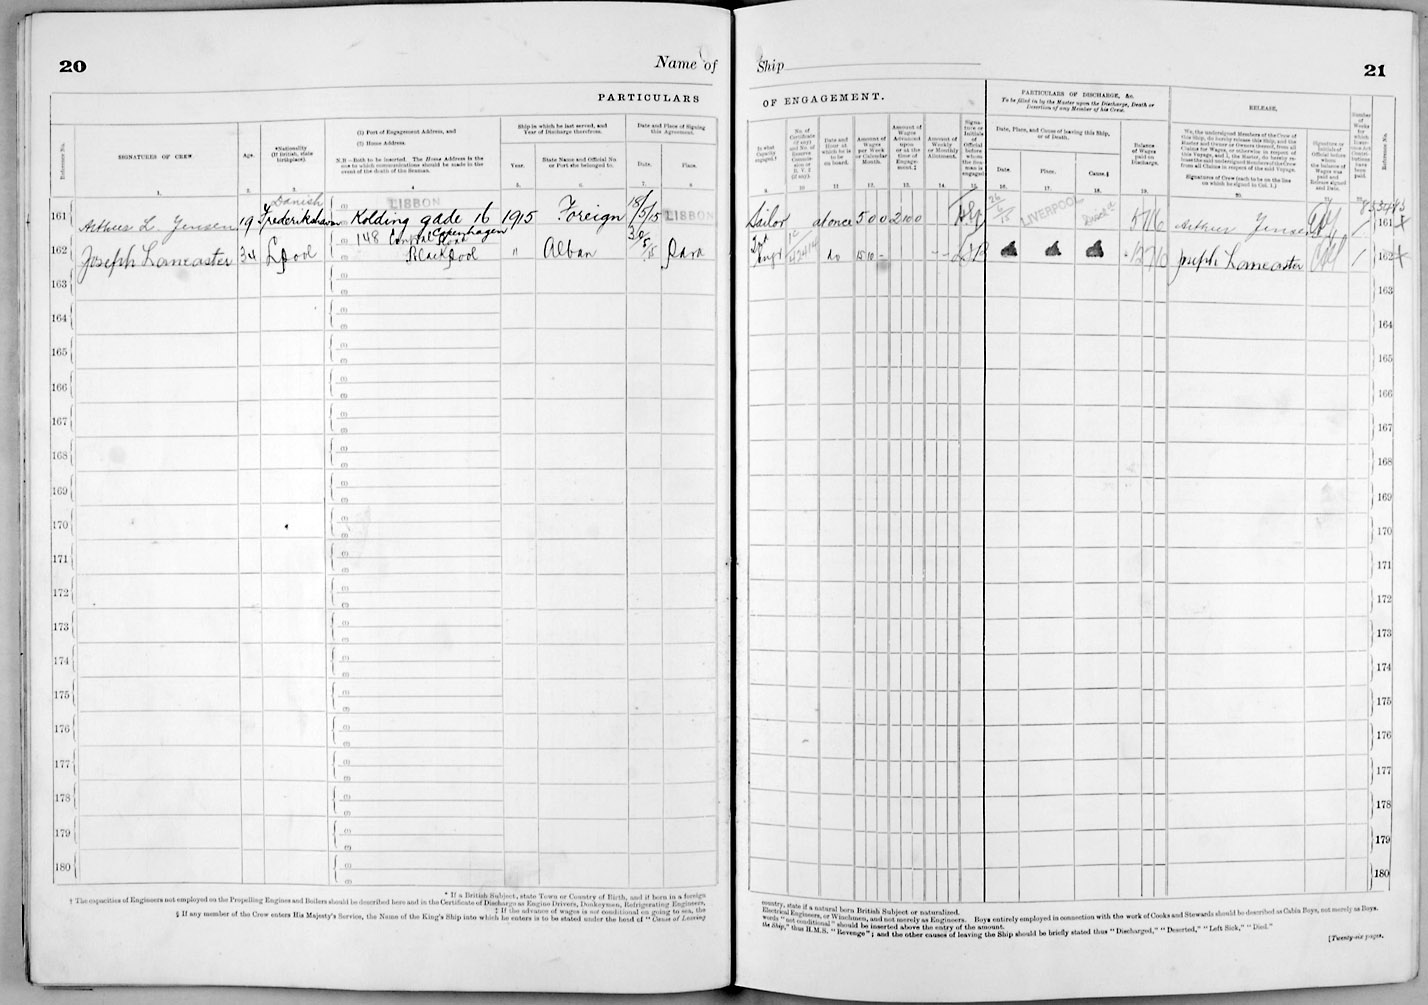 20
Name of
Ship
21
PARTICULARS
OF ENGAGEMENT.
PARTICULARS OF DISCHARGE, &c.
To be filled in by the Master upon the Discharge, Death or
Desertion of any Member of his Crew.
RELEASE.
Reference No.
SIGNATURES OF CREW.
Age.
*Nationality
(If British, state
birthplace).
(1) Port of Engagement Address, and
(2) Home Address.
N.B.—Both to be inserted. The Home Address is the
one to which communications should be made in the
event of the death of the Seaman.
Ship in which he last served, and
Year of Discharge therefrom.
Year.
State Name and Official No.
or Port she belonged to.
Date and Place of Signing
this Agreement.
Date.
Place.
In what
Capacity
engaged.†
No. of
Certificate
(if any)
and No. of
Reserve
Commis-
sion or
R.V. 2
(if any).
Date and
Hour at
which he is
to be
on board.
Amount of
Wages
per Week
or Calendar
Month.
Amount of
Wages
Advanced
upon
or at the
time of
Engage-
ment.‡
Amount of
Weekly
or Monthly
Allotment.
Signa-
ture or
Initials
of
Official
before
whom
the Sea-
man is
engaged
Date, Place, and Cause of leaving this Ship,
or of Death.
Date.
Place.
Cause.§
Balance
of Wages
paid on
Discharge.
We, the undersigned Members of the Crew of
this Ship, do hereby release this Ship, and the
Master and Owner or Owners thereof, from all
Claims for Wages, or otherwise in respect of
this Voyage, and I, the Master, do hereby re-
lease the undersigned Members of the Crew
from all Claims in respect of the said Voyage.
Signatures of Crew (each to be on the line
on which he signed in Col. 1.)
Signature or
Initials of
Official before
whom
the balance of
Wages was
paid and
Release signed
and Date.
Number
of
Weeks
for
which
Reference No.
1. 2. 3. 4 5. 6. 7. 8
9. 10 11 12. 13. 14. 15. 16. 17. 18. 19. 20.
161 Arthur L. Jensen 19 Danish Frederikshavn LISBON Kolding gade 16 Copenhagen 1915 Foreign 18/5/15 LISBON
Sailor at once 5 0 0 2 10 0 26/6/15 LIVERPOOL Arthur Jensen 1 161
162 Joseph Lancaster 34 Lpool 148 Central Road Blackpool " Alban 30/5/15 Para
2nd Engr do 15 10 - Joseph Lancaster 1 162
163 163
164 164
165 165
166 166
167 167
168 168
169 169
170 170
171 171
172 172
173 173
174 174
175 175
176 176
177 177
178 178
179 179
180 180
* If a British Subject, state Town or Country of Birth, and if born in a foreign
country, state if a natural born British Subject or naturalized.
† The capacities of Engineers not employed on the Propelling Engines and Boilers should be described here and in the Certificate of Discharge as Engine Drivers, Donkeymen, Refrigerating Engineers,
Electrical Engineers, or Winchmen, and not merely as Engineers. Boys entirely employed in connection with the work of Cooks and Stewards should be described as Cabin Boys, not merely as Boys.
‡ If the advance of wages is not conditional on going to sea, the
words "not conditional" should be inserted above the entry of the amount.
§ If any member of the Crew enters His Majesty's Service, the Name of the King's Ship into which he enters is to be stated under the head of "Cause of Leaving
the Ship," thus H.M.S. "Revenge"; and the other causes of leaving the Ship should be briefly stated thus "Discharged," "Deserted," "Left Sick," "Died."
[Twenty-six pages.